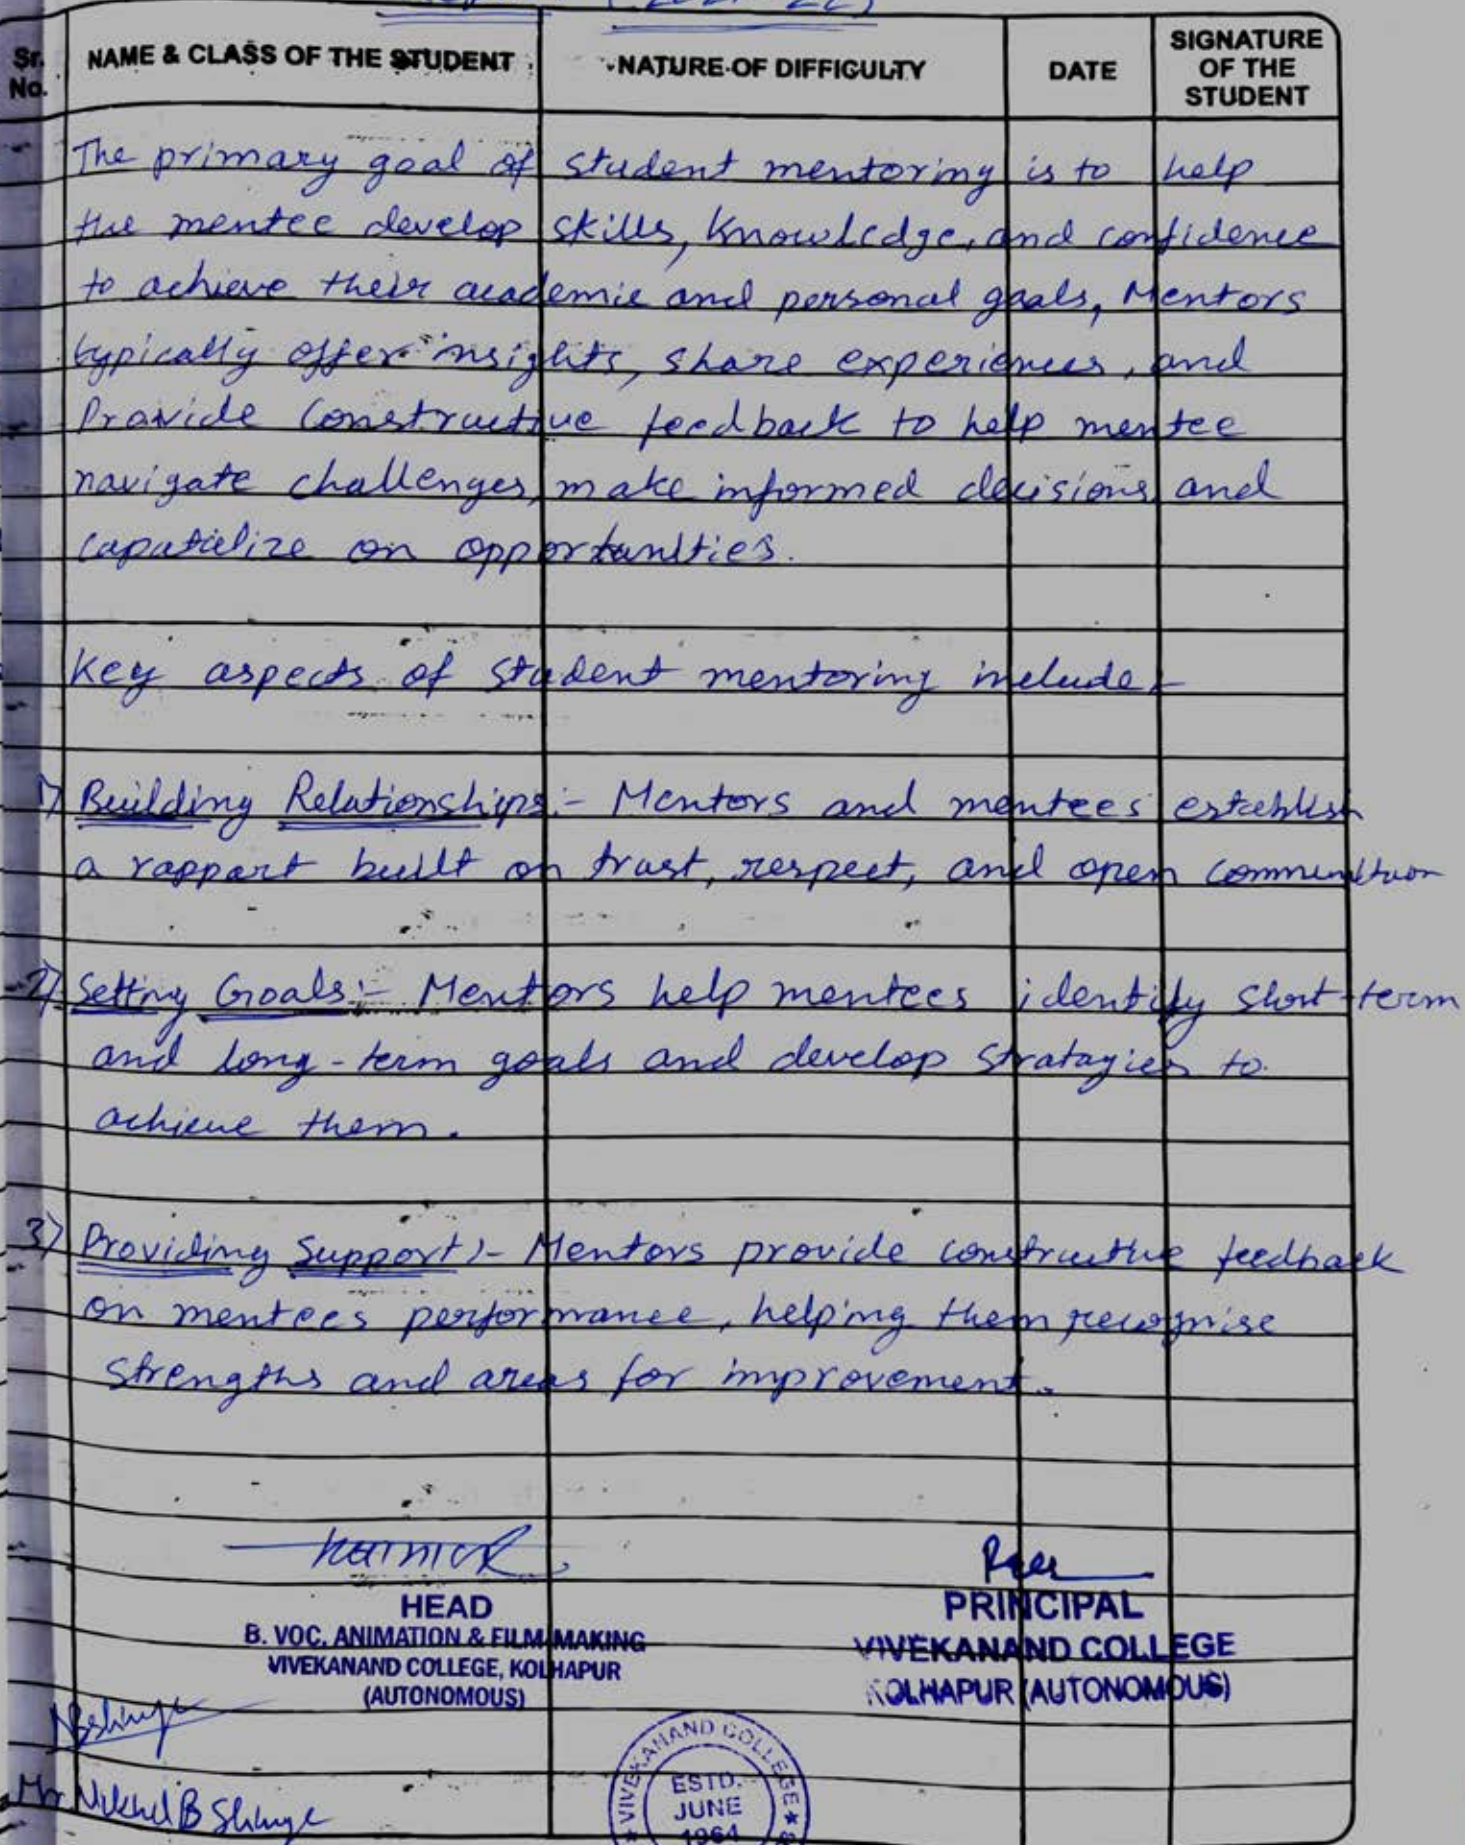 (2021-22)
Sr. No.
NAME & CLASS OF THE STUDENT
NATURE OF DIFFICULTY
DATE
SIGNATURE OF THE STUDENT
The primary goal of student mentoring is to help
the mentee develop skills, knowledge, and confidence
to achieve their academic and personal goals, Mentors
typically offer insights, share experiences, and
Provide Constructive feedback to help mentee
navigate challenges, make informed decisions and
capatielize on opportunities.
Key aspects of student mentoring include,-
1) Building Relationships:- Mentors and mentees establish
a rapport built on trust, respect, and open
2) Setting Goals:- Mentors help mentees identify short-term
and long-term goals and develop stratagies to
achieve them.
3) Providing Support:- Mentors provide constructive feedback
on mentees performance, helping them recognise
strengths and areas for improvement.
HEAD
B. VOC. ANIMATION & FILM MAKING
VIVEKANAND COLLEGE, KOLHAPUR
(AUTONOMOUS)
PRINCIPAL
VIVEKANAND COLLEGE
KOLHAPUR (AUTONOMOUS)
Mr B
VIVEKANAND COLLEGE
ESTD.
JUNE
1964